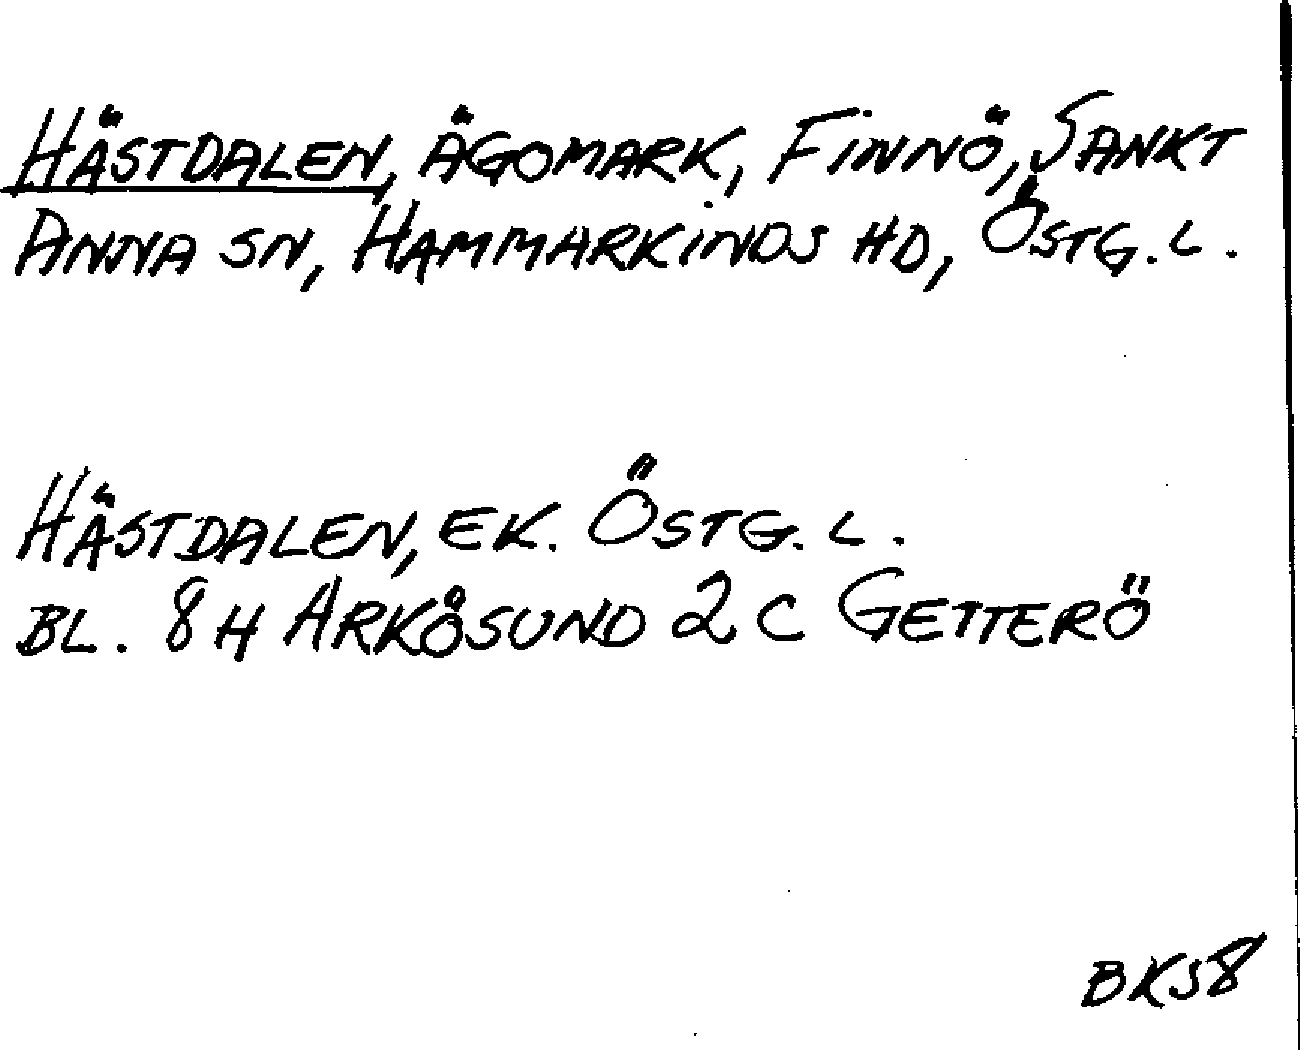 HÄSTDALEN, ÄGOMARK, FINNÖ, SANKT
ANNA SN, HAMMARKINDS HD, ÖSTG. L.
HÄSTDALEN, EK. ÖSTG. L.
BL. 8H ARKÖSUND 2C GETTERÖ
BKS8